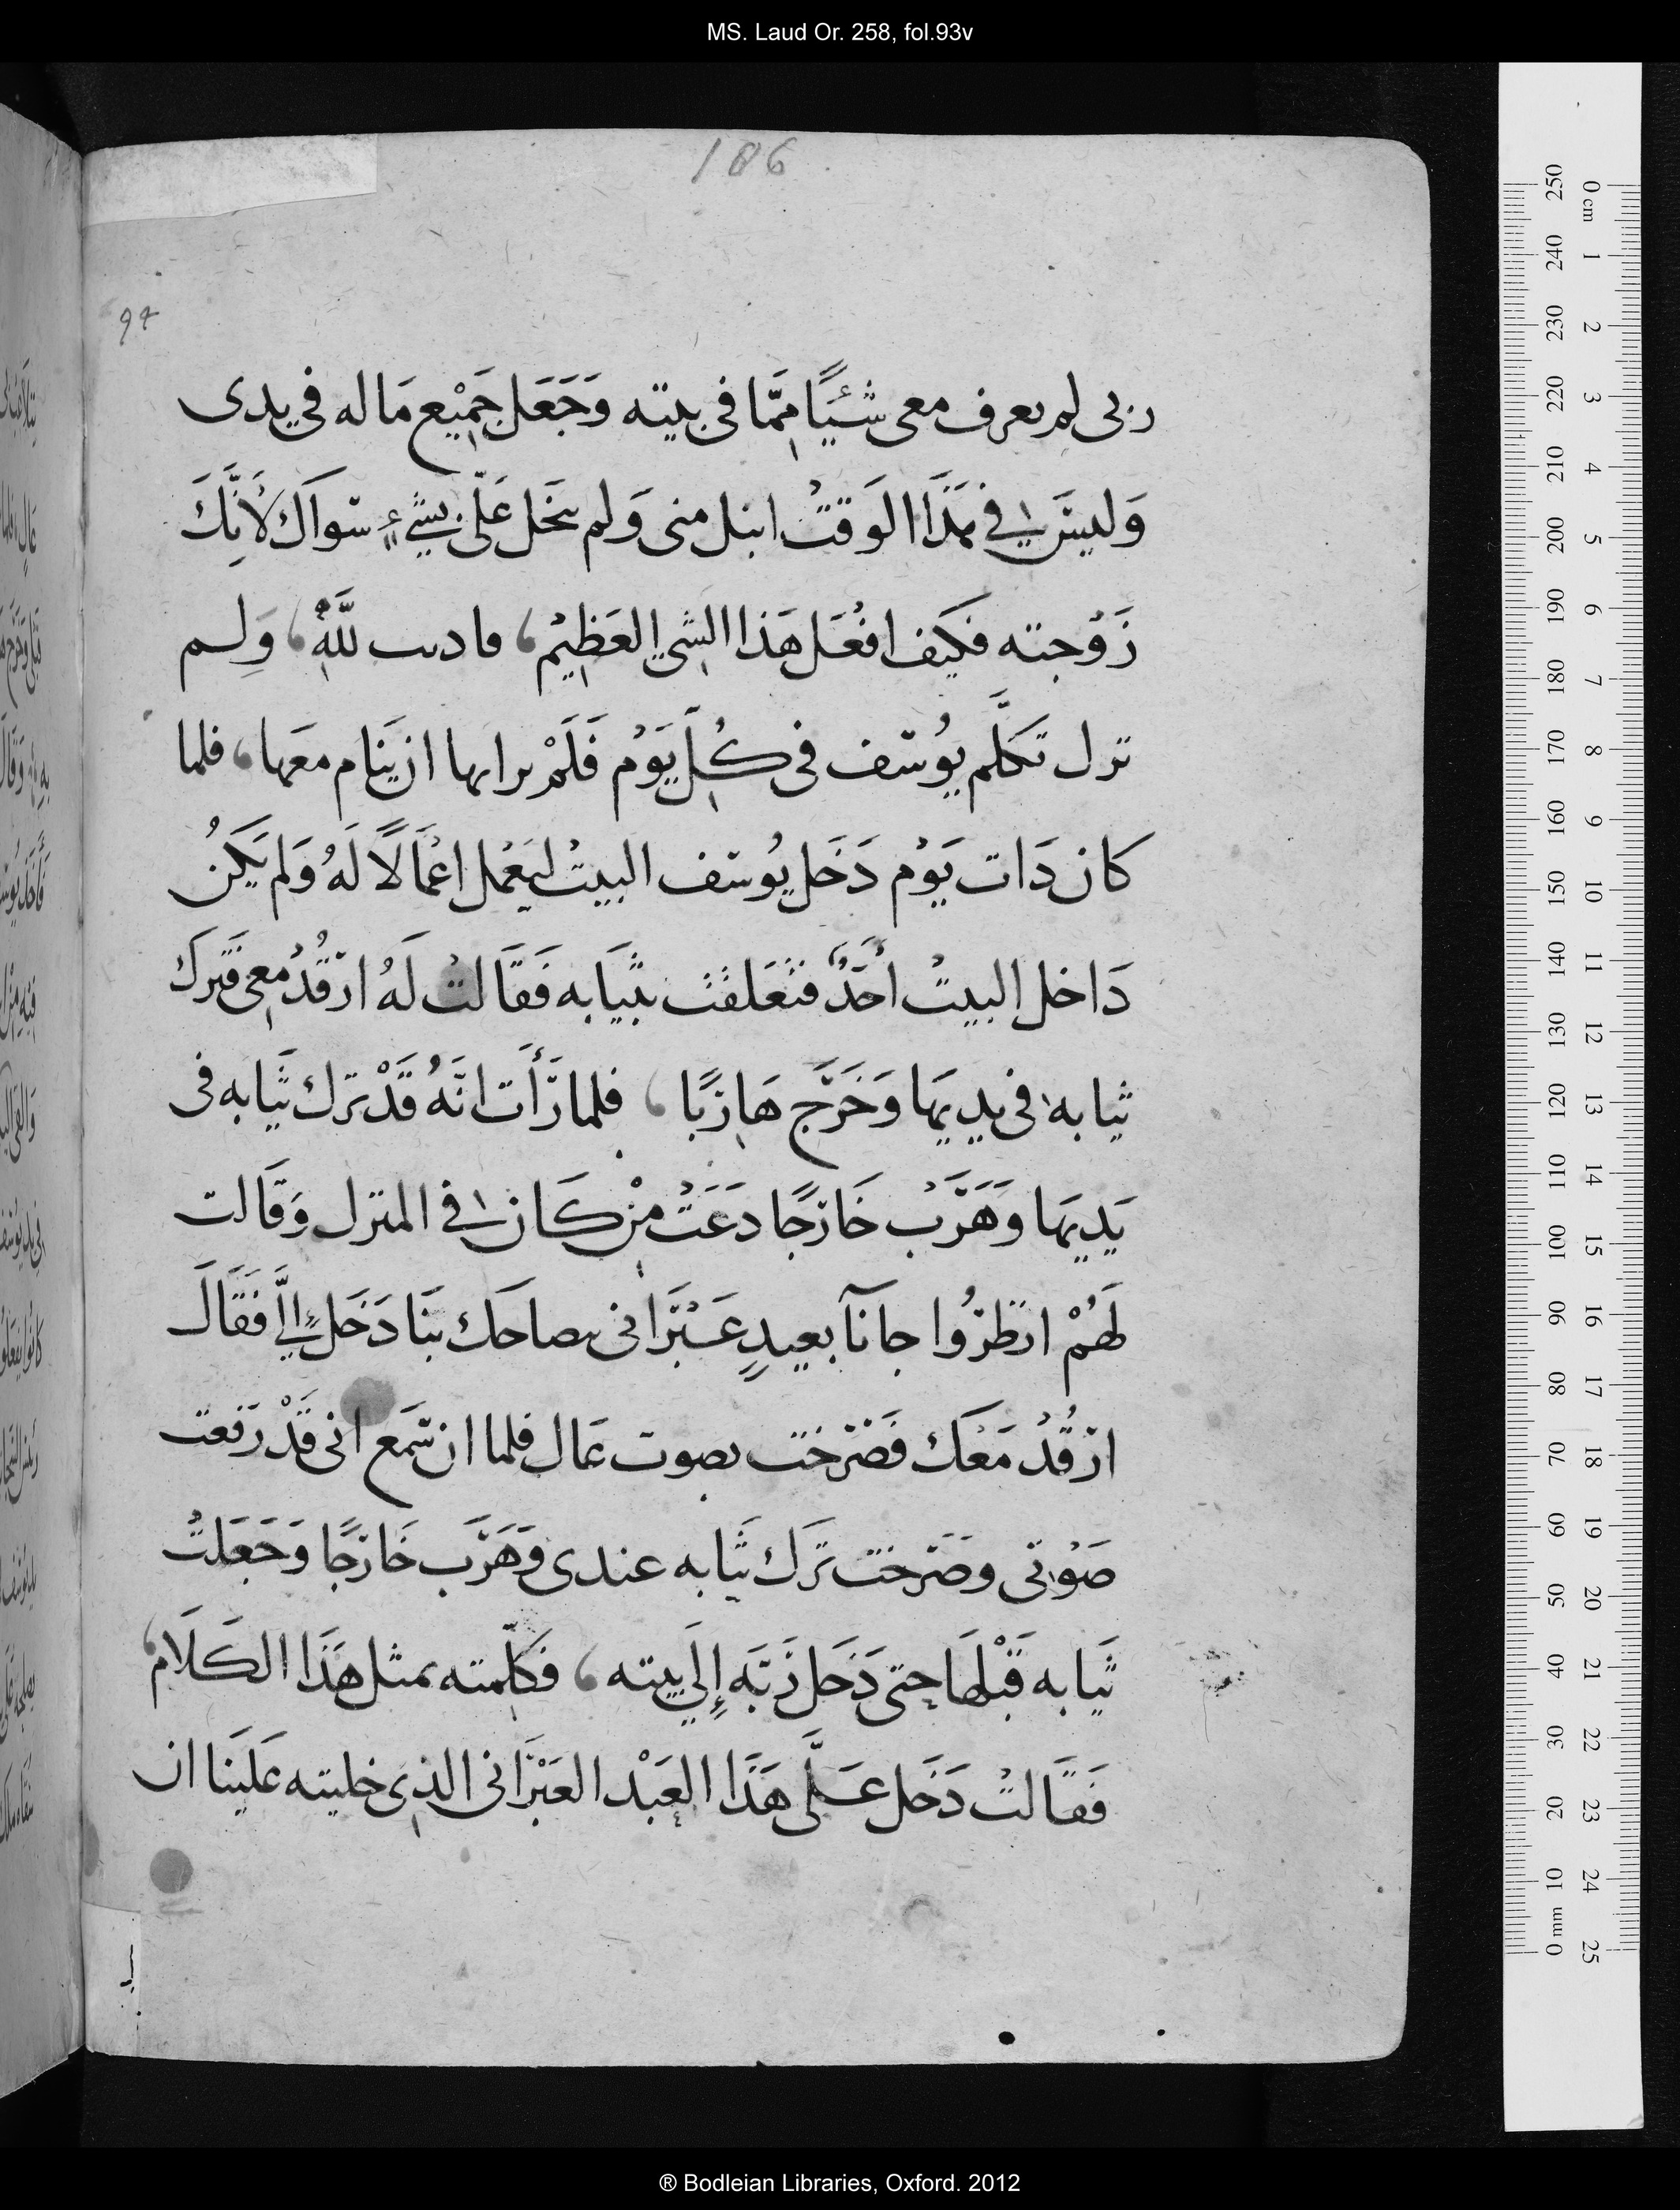 MS. Laud Or. 258, fol.93v
186
94
ربى لم يعرف معى شَيًا مِمَّا فى بيته وَجَعَل جَمِيْع مَا له فى يدى
وَليسَ فى هَذَا الوَقتْ انبل منى وَلم يبخل عَلَىّ بشىءٍ سَواك لأَنَّكِ
زَوْجته فكَيف افْعَل هَذا الشى العَظِيْم، لله، وَلم
تزل تكَلَّم يُوسَف فى كُلِّ يَوْم فَلَمْ ان يَنام معَها، فلما
كان دَات يَوْم دَخَل يُوسَف البيتْ ليَعْمل اعْمَالًا لَهُ وَلم يَكنُ
دَاخل البيتْ أَحَدٌ فتَعَلقَت بثيَابه فَقَالتْ لَهُ ارْقُدْ معى فَترك
ثيابه فى يديهَا وَخَرَج هَارِبًا، فلما رَأَت انَّهُ قَدْ ترك ثيَابه فى
يَديهَا وَهَرَبْ خَارجًا دَعَتْ مِنْ كَان فى المنزل وَقَالت
لَهُمْ انظرُوا جانَآ بعبدٍ عَبْرَانى بنَا دَخَل إلىَّ فَقَالَ
ارْقُدْ مَعَك فَصَرَخت بصوت عَال فلما ان سَمع انى قَدْ رَفعت
صَوْتى وصَرخت تَرَك ثيَابه عندى وَهَرَب خَارجًا وَجَعَلتْ
ثيَابه قَبْلهَا حتى دَخَل رَبَّه إِلَى بيته، فكلّمته بمثل هَذَا الكَلَام،
فَقَالتْ دَخَل عَلَىَّ هَذَا العَبْد العَبْرَانى الذى خليته عَلَينا ان
® Bodleian Libraries, Oxford. 2012